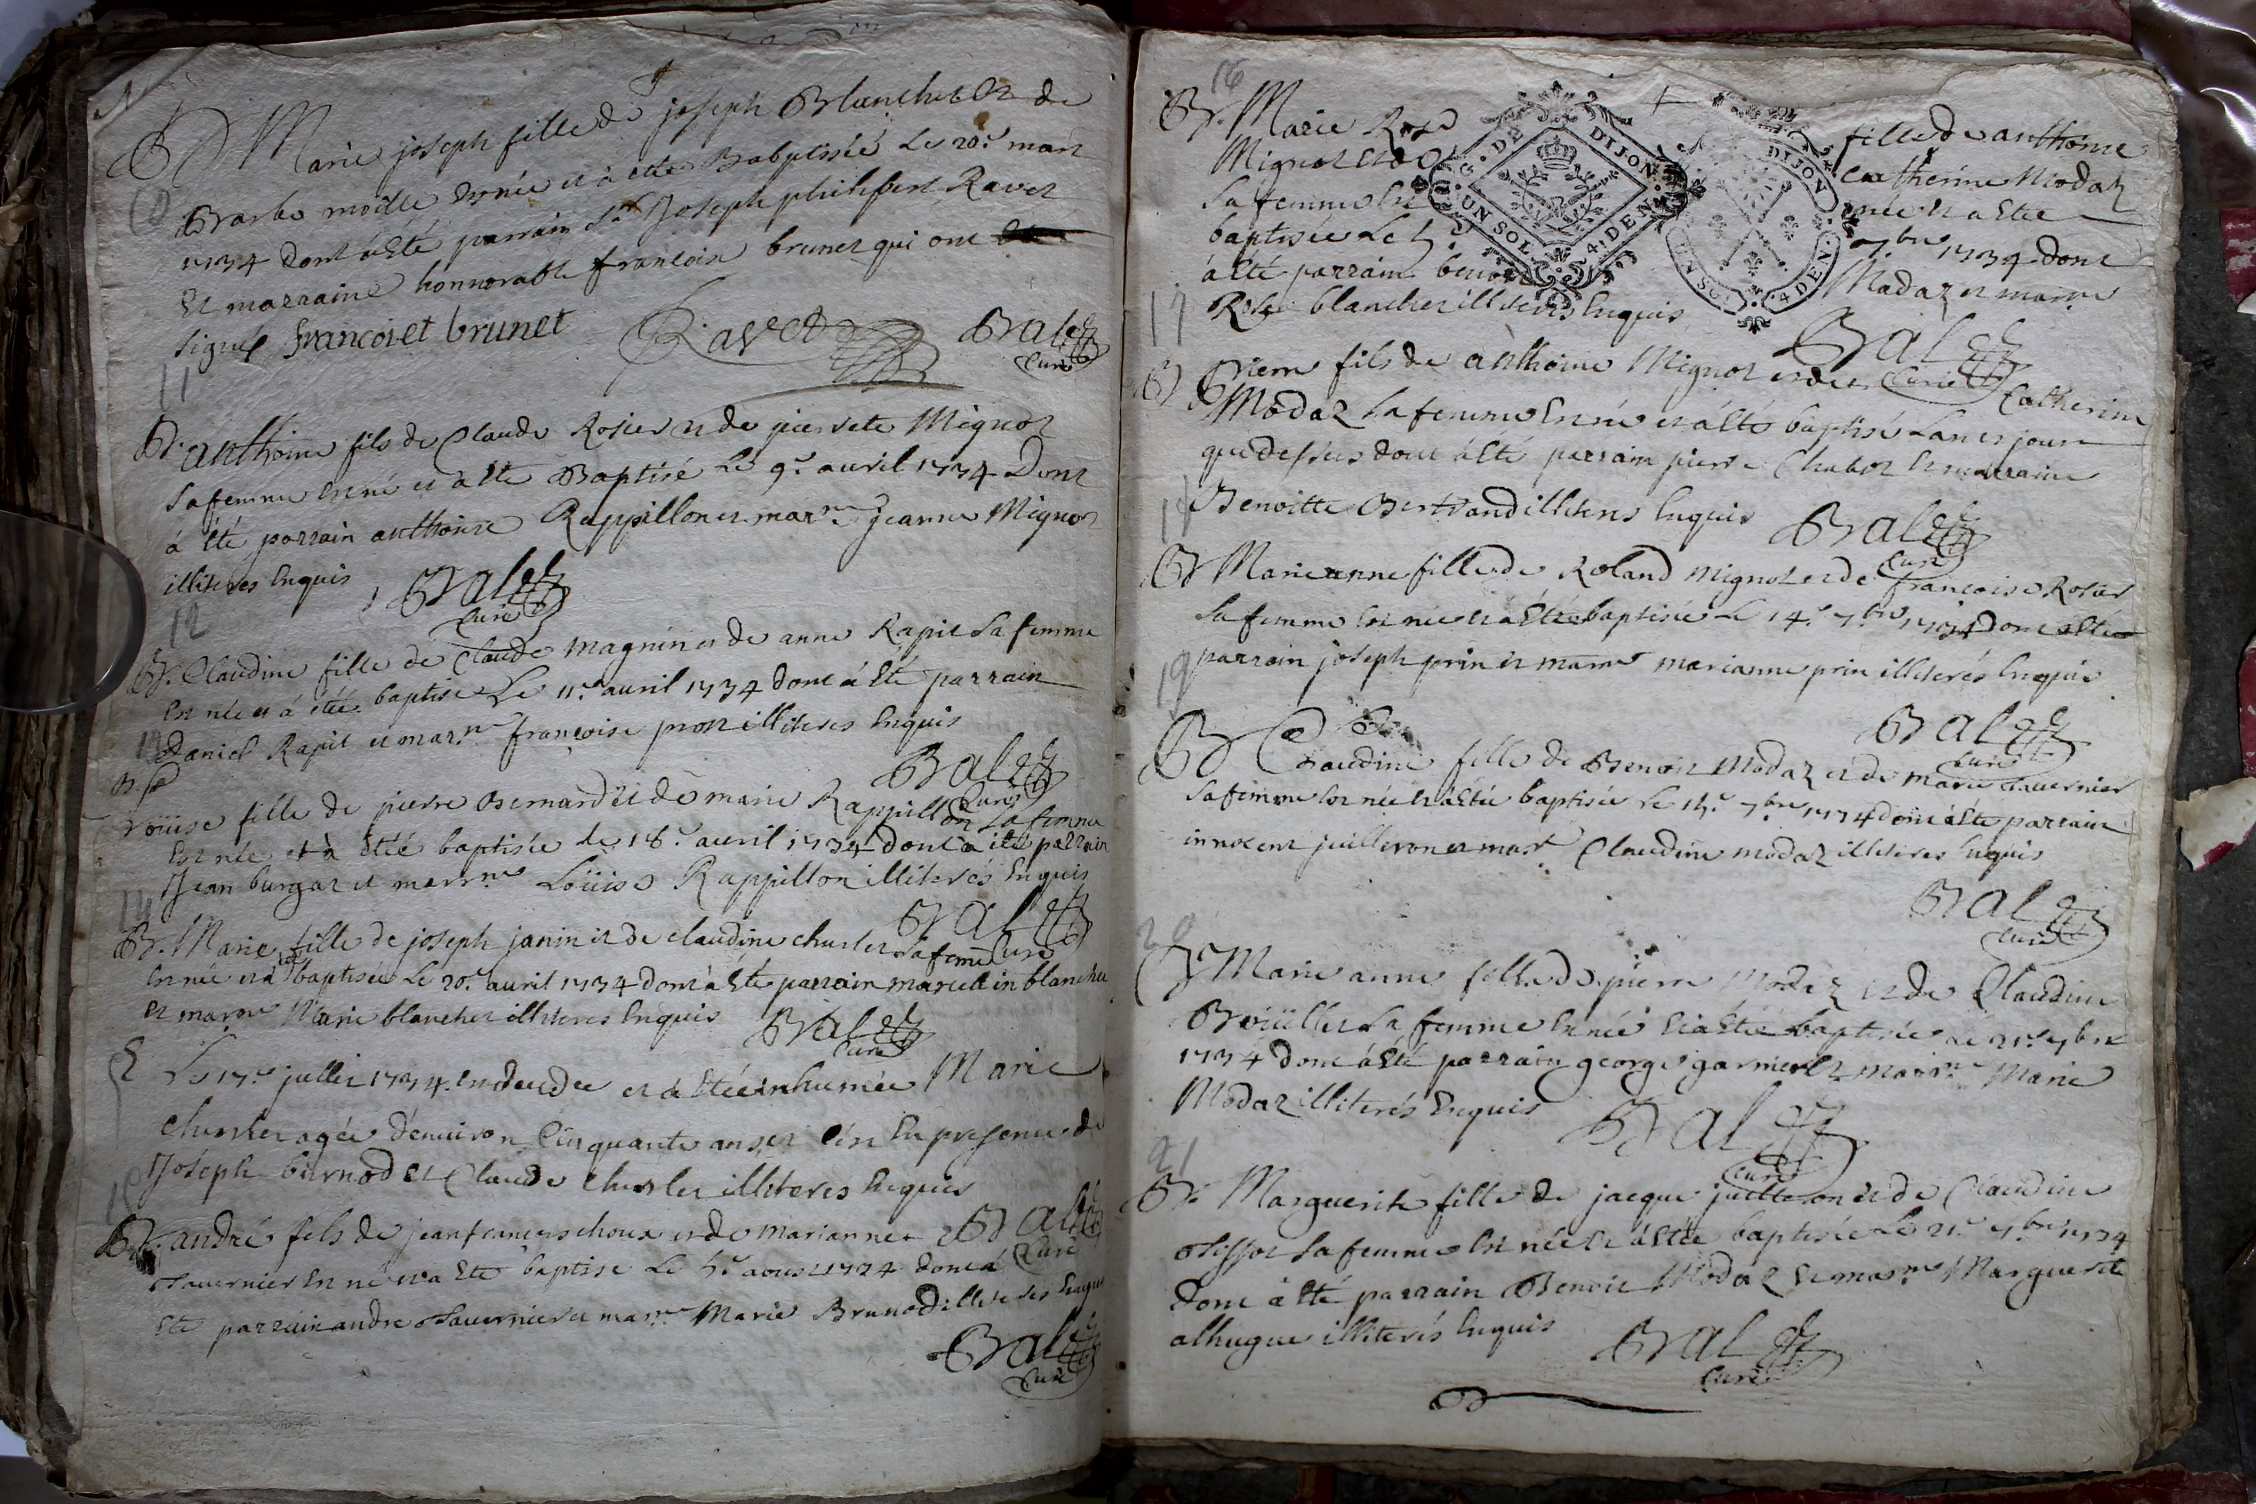 B Marie joseph fille de joseph Blanchet Et de
Barbe moille Est née et à etté Babptissée Le 20.e mars
1734 dont à esté parrain Sr. Joseph philibert Ravet
Et marraine honnorable francoise brunet qui ont
signés francoiet brunet Ravet Balez
Curé
11
B. anthoine fils de Claude Rosier et de pierrete Mignot
sa femme Est né et à esté Baptisé Le 9.e avril 1734 Dont
à Eté parrain anthoine Rappillon et marne Jeanne Mignot
illiterés Enquis Balez
Curé
12
B. Claudine fille de Claude magnin et de anne Rapit sa femme
Est née et à étée baptisé Le 11.e avril 1734 dont à Eté parrain
Daniel Rapit et marne françoise prost illiterés Enquis
Balez
Curé
13
B.
Loüise fille de pierre Bernard et de marie Rappillon sa femme
Est née et à étéé baptisée Le 18.e avril 1734 dont à été parrain
Jean burgaz et marrne Loüise Rappillon illiterés Enquis
Balez
Curé
14
B. Marie fille de joseph janin et de claudine charles sa feme
Est née et à baptisée Le 20.e avril 1734 dont à Eté parrain marcellin blanchet
Et marne Marie blanchet illiterés Enquis Balez
Curé
Le 17.e jullet 1734 Est decedee et à Etée inhumée Marie
agée d'environ Cinquante ans et c'est En presence de
Joseph burnod et Claude illiterés Enquis
Balez
Curé
15
B. andré fils de jean francois choux et de marianne
Tavernier Est né et à Eté baptisé Le 5.e aoust 1734 dont à
Eté parrain andre Tavernier et marne Marie Brunod illiterés Enquis
Balez
Curé
16
B. Marie Rose fille de anthoine
Mignot et de Catherine Modaz
sa femme Est née et a Etée
baptisée Le 5.e 7bre 1734 dont
à Eté parrain benoit Modaz et marne
Rose blanchet illiterés Enquis
G. DE DIJON
UN SOL. 4. DEN.
DIJON
UN SOL. 4 DEN.
Balez
Curé
17
B Pierre fils de anthoine Mignot et de Catherine
Modaz sa femme Est né et à Eté baptisé L'an et jour
que dessus dont à Eté parrain pierre Chabot Et marraine
Benoitte Bertrand illiterés Enquis Balez
Curé
18
B Marieanne fille de Roland Mignot et de francoise Rosier
sa femme Est née et à Etée baptisée Le 14.e 7bre 1734 dont à Etée
parrain joseph prin et marne marianne prin illiterés Enquis
Balez
Curé
19
B Claudine fille de Benoit Modaz et de marie Tavernier
sa femme Est née et à Etée baptisée Le 15.e 7bre 1734 dont à Eté parrain
innocent juilleron et marne Claudine modaz illiterés Enquis
Balez
Curé
20
B Marie anne fille de pierre Modaz et de Claudine
Bouiller sa femme Est née Et à Etée baptisée Le 21.e 7bre
1734 dont à Eté parrain george garnier Et marne Marie
Modaz illiterés Enquis Balez
Curé
21
B. Marguerite fille de jacque juilleron et de Claudine
Tissot sa femme Est née Et à Etée baptisée Le 21.e 7bre 1734
dont à Eté parrain Benoit Modaz Et marne Marguerite
alhugue illiterés Enquis Balez
Curé